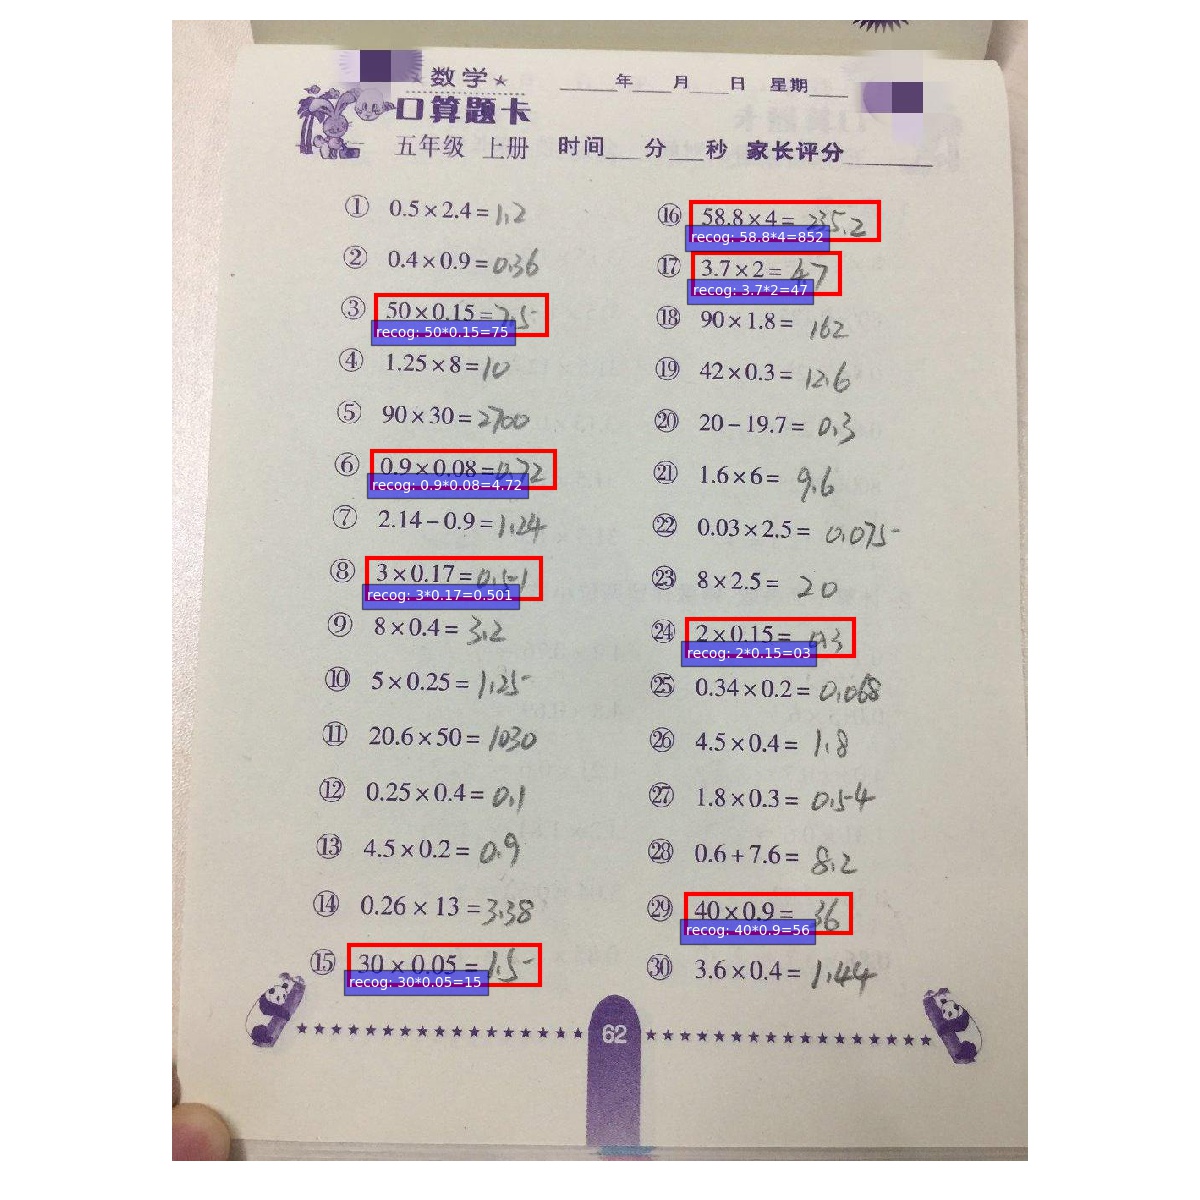 ★数学★
口算题卡
五年级 上册
____年____月____日 星期____
时间___分___秒 家长评分________
① 0.5×2.4=1.2
② 0.4×0.9=0.36
③ 50×0.15=7.5
recog: 50*0.15=75
④ 1.25×8=10
⑤ 90×30=2700
⑥ 0.9×0.08=0.72
recog: 0.9*0.08=4.72
⑦ 2.14-0.9=1.24
⑧ 3×0.17=0.51
recog: 3*0.17=0.501
⑨ 8×0.4=3.2
⑩ 5×0.25=1.25
⑪ 20.6×50=1030
⑫ 0.25×0.4=0.1
⑬ 4.5×0.2=0.9
⑭ 0.26×13=3.38
⑮ 30×0.05=1.5
recog: 30*0.05=15
⑯ 58.8×4=235.2
recog: 58.8*4=852
⑰ 3.7×2=47
recog: 3.7*2=47
⑱ 90×1.8=162
⑲ 42×0.3=12.6
⑳ 20-19.7=0.3
㉑ 1.6×6=9.6
㉒ 0.03×2.5=0.075
㉓ 8×2.5=20
㉔ 2×0.15=0.3
recog: 2*0.15=03
㉕ 0.34×0.2=0.068
㉖ 4.5×0.4=1.8
㉗ 1.8×0.3=0.54
㉘ 0.6+7.6=8.2
㉙ 40×0.9=36
recog: 40*0.9=56
㉚ 3.6×0.4=1.44
62